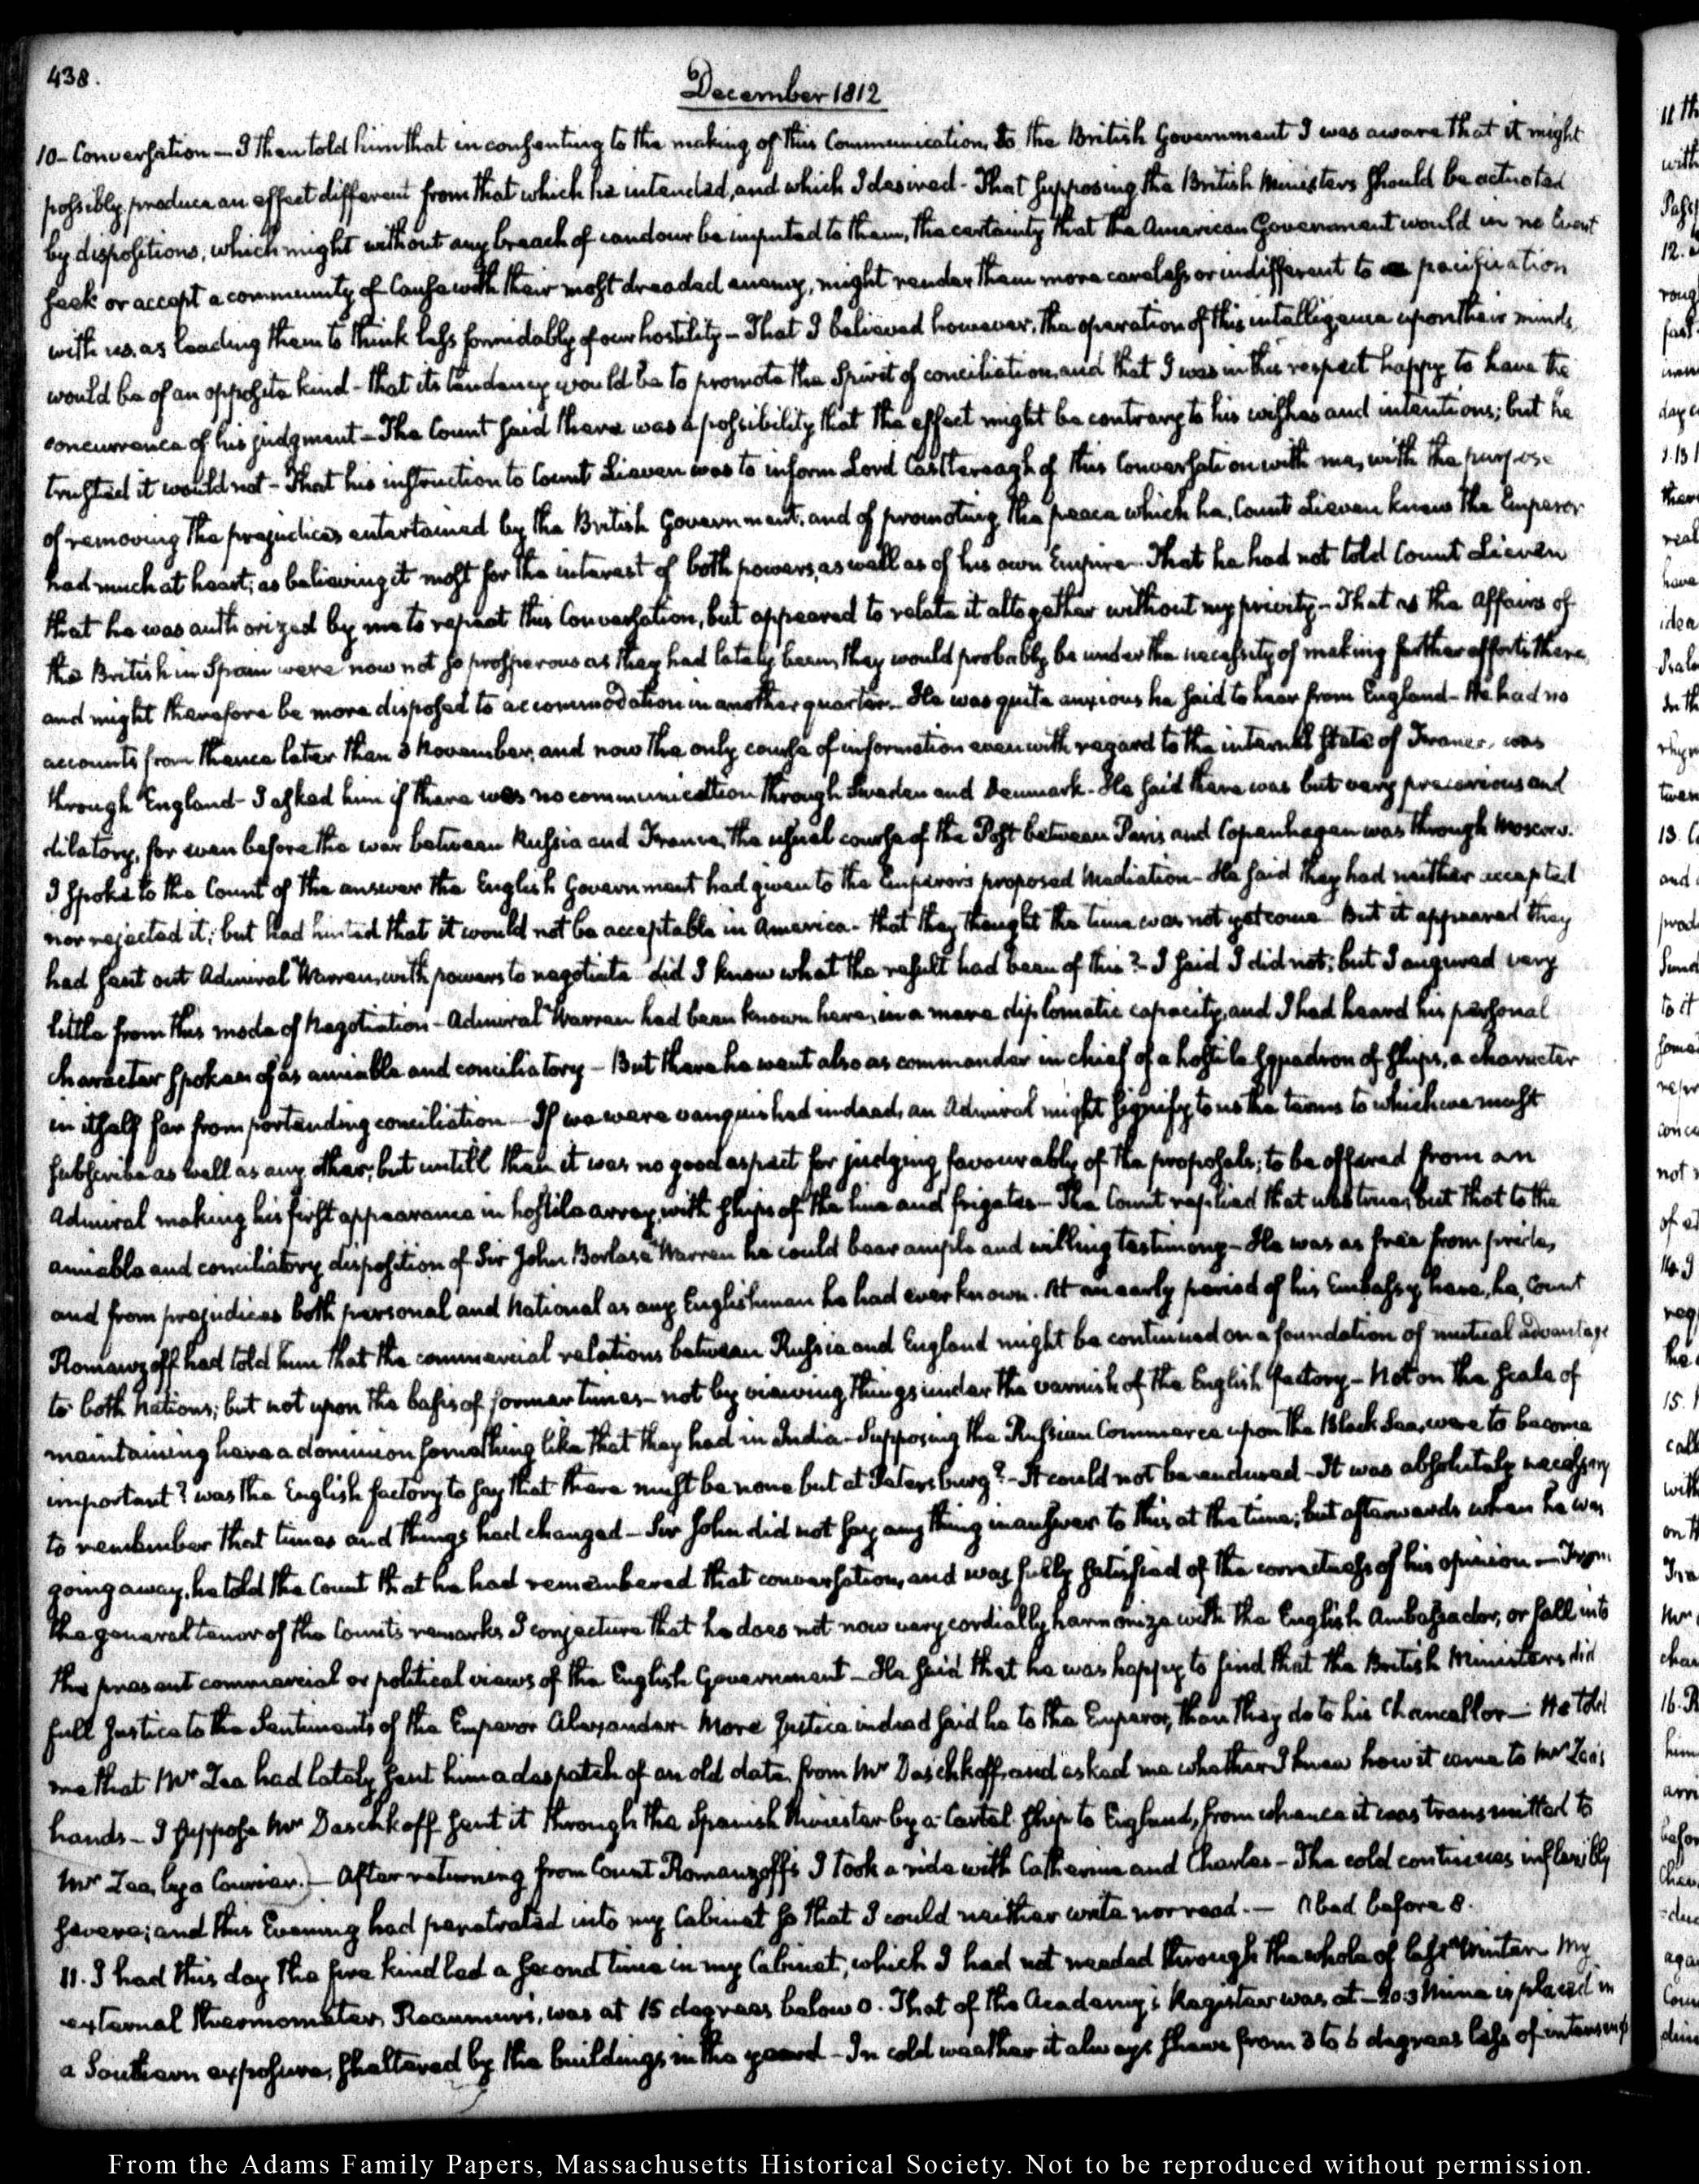 438.
December 1812
10- Conversation — I then told him that in consenting to the making of this Communication, to the British Government I was aware that it might
possibly, produce an effect different from that which he intended, and which I desired - That supposing the British Ministers should be actuated
by dispositions, which might without any breach of candour be imputed to them, the certainty that the American Government would in no Event
seek or accept a community of Cause with their most dreaded enemy, might render them more careless or indifferent to a pacification
with us, as leading them to think less formidably of our hostility - That I believed however, the operation of this intelligence upon their minds,
would be of an opposite kind - that its tendency would be to promote the Spirit of conciliation, and that I was in this respect happy to have the
concurrence of his judgment - The Count said there was a possibility that the effect might be contrary to his wishes and intentions; but he
trusted it would not - That his instruction to Count Lieven was to inform Lord Castlereagh of this Conversation with me, with the purpose
of removing the prejudices entertained by the British Government, and of promoting the peace which he, Count Lieven knew the Emperor
had much at heart; as believing it most for the interest of both powers, as well as of his own Empire. That he had not told Count Lieven
that he was authorized by me to repeat this Conversation, but appeared to relate it altogether without my privity - That as the affairs of
the British in Spain were now not so prosperous as they had lately been, they would probably be under the necessity of making further efforts there,
and might therefore be more disposed to accommodation in another quarter. He was quite anxious he said to hear from England - He had no
accounts from thence later than 3 November, and now the only course of information even with regard to the internal state of France, was
through England - I asked him if there was no communication through Sweden and Denmark - He said there was but very precarious and
dilatory, for even before the war between Russia and France, the usual course of the Post between Paris and Copenhagen was through Moscow.
I spoke to the Count of the answer the English Government had given to the Emperor's proposed Mediation - He said they had neither accepted
nor rejected it; but had hinted that it would not be acceptable in America - that they thought the time was not yet come. But it appeared they
had sent out Admiral Warren, with powers to negotiate did I know what the result had been of this? - I said I did not; but I augured very
little from this mode of Negotiation - Admiral Warren had been known here, in a mere diplomatic capacity, and I had heard his personal
character spoken of as amiable and conciliatory - But there he went also as commander in chief of a hostile squadron of ships, a character
in itself far from portending conciliation - If we were vanquished indeed, an Admiral might signify to us the terms to which we must
subscribe as well as any other; but untill then it was no good aspect for judging favourably of the proposals; to be offered from an
Admiral making his first appearance in hostile array, with ships of the line and frigates - The Count replied that was true; but that to the
amiable and conciliatory disposition of Sir John Borlase Warren he could bear ample and willing testimony - He was as free from pride,
and from prejudices both personal and National as any Englishman he had ever known. At an early period of his Embassy here, he, Count
Romanzoff had told him that the commercial relations between Russia and England might be continued on a foundation of mutual advantage
to both Nations; but not upon the basis of former times - not by viewing things under the varnish of the English factory - Not on the scale of
maintaining here a dominion something like that they had in India - Supposing the Russian Commerce upon the Black Sea, were to become
important? was the English factory to say that there must be none but at Petersburg? - It could not be endured - It was absolutely necessary
to remember that times and things had changed - Sir John did not say any thing in answer to this at the time; but afterwards when he was
going away, he told the Count that he had remembered that conversation, and was fully satisfied of the correctness of his opinion - From
the general tenor of the Count's remarks I conjecture that he does not now very cordially harmonize with the English Ambassador, or fall into
the present commercial or political views of the English Government - He said that he was happy to find that the British Ministers did
full Justice to the Sentiments of the Emperor Alexander. More Justice indeed said he to the Emperor, than they do to his Chancellor - He told
me that Mr Zea had lately sent him a despatch of an old date, from Mr Daschkoff, and asked me whether I knew how it came to Mr Zea's
hands - I suppose Mr Daschkoff sent it through the Spanish Minister by a Cartel ship to England, from whence it was transmitted to
Mr Zea, by a Courier.) - After returning from Count Romanzoff's I took a ride with Catherine and Charles - The cold continues inflexibly
severe; and this Evening had penetrated into my Cabinet so that I could neither write nor read. — Abed before 8.
11. I had this day the fire kindled a second time in my Cabinet, which I had not needed through the whole of last Winter. My
external thermometer, Reaumur's, was at 15 degrees below 0. That of the Academy's Register was at -20.3 Mine is placed in
a Southern exposure, sheltered by the buildings in the yard - In cold weather it always shews from 3 to 6 degrees less of intensity
From the Adams Family Papers, Massachusetts Historical Society. Not to be reproduced without permission.